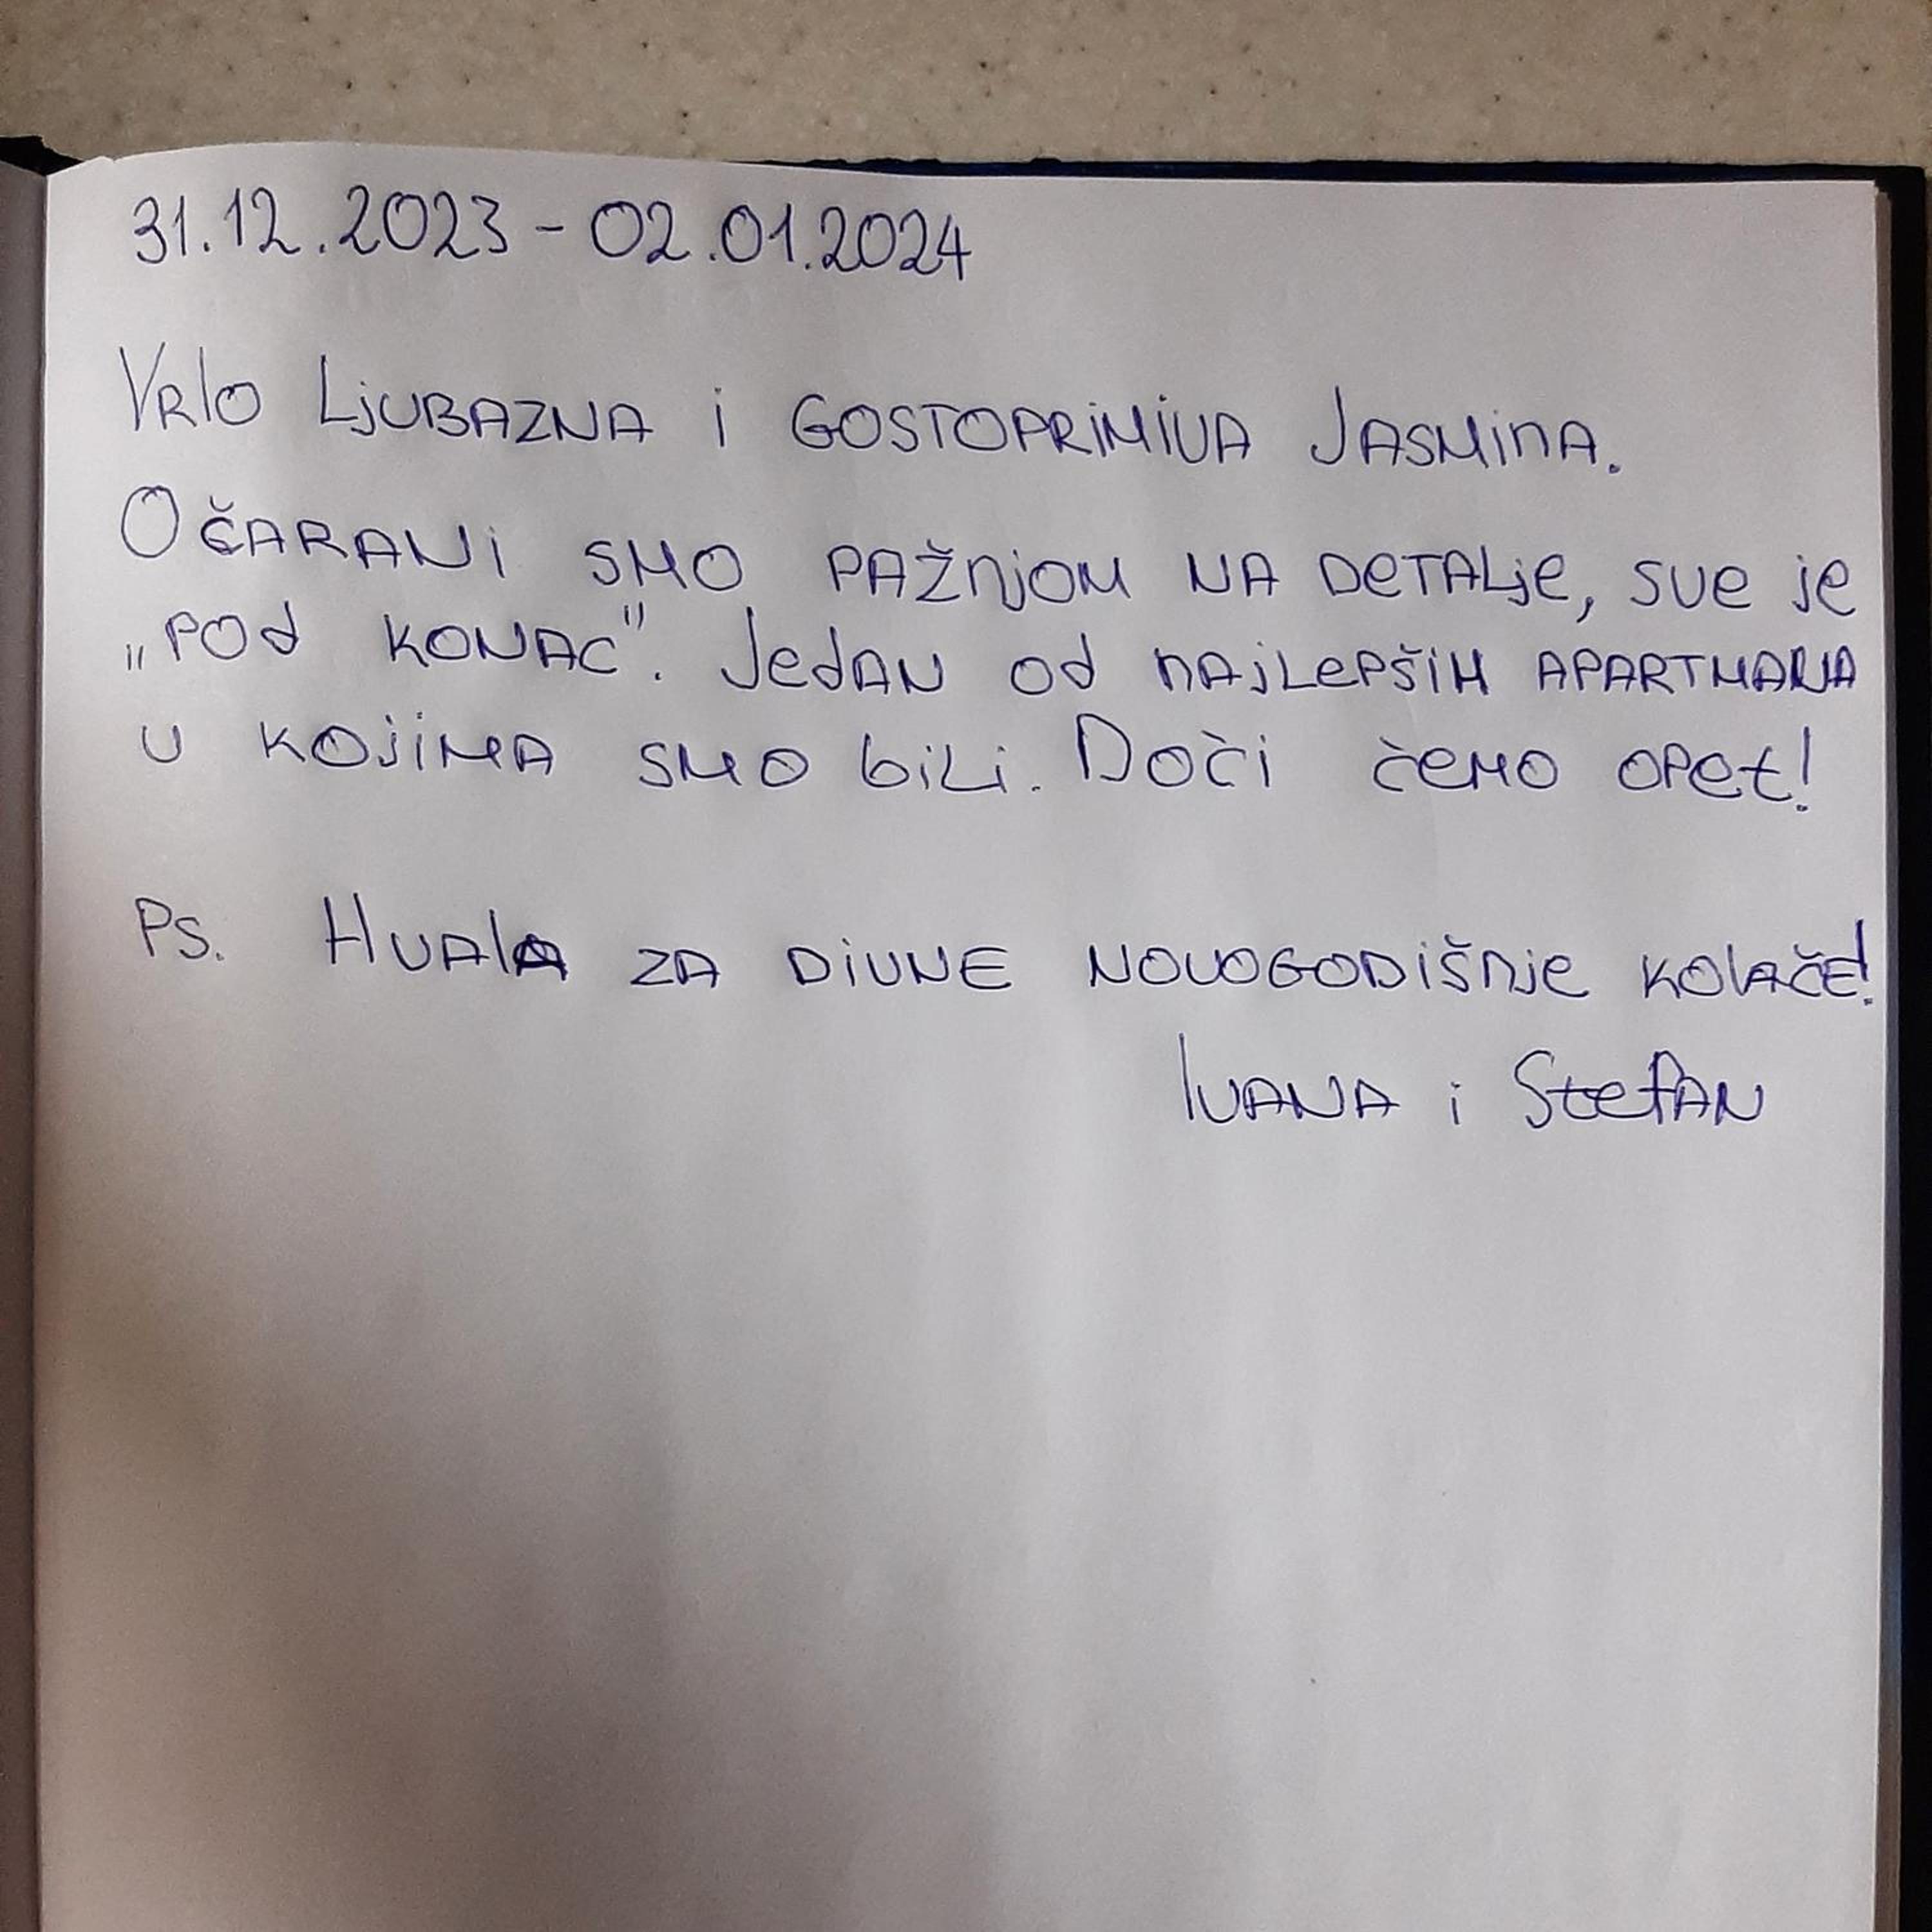 31.12.2023 - 02.01.2024
Vrlo ljubazna i gostoprimiva Jasmina.
Očarani smo pažnjom na detalje, sve je
„pod konac". Jedan od najlepših apartmana
u kojima smo bili. Doči čemo opet!
Ps. Hvala za divne novogodišnje kolače!
Ivana i Stefan